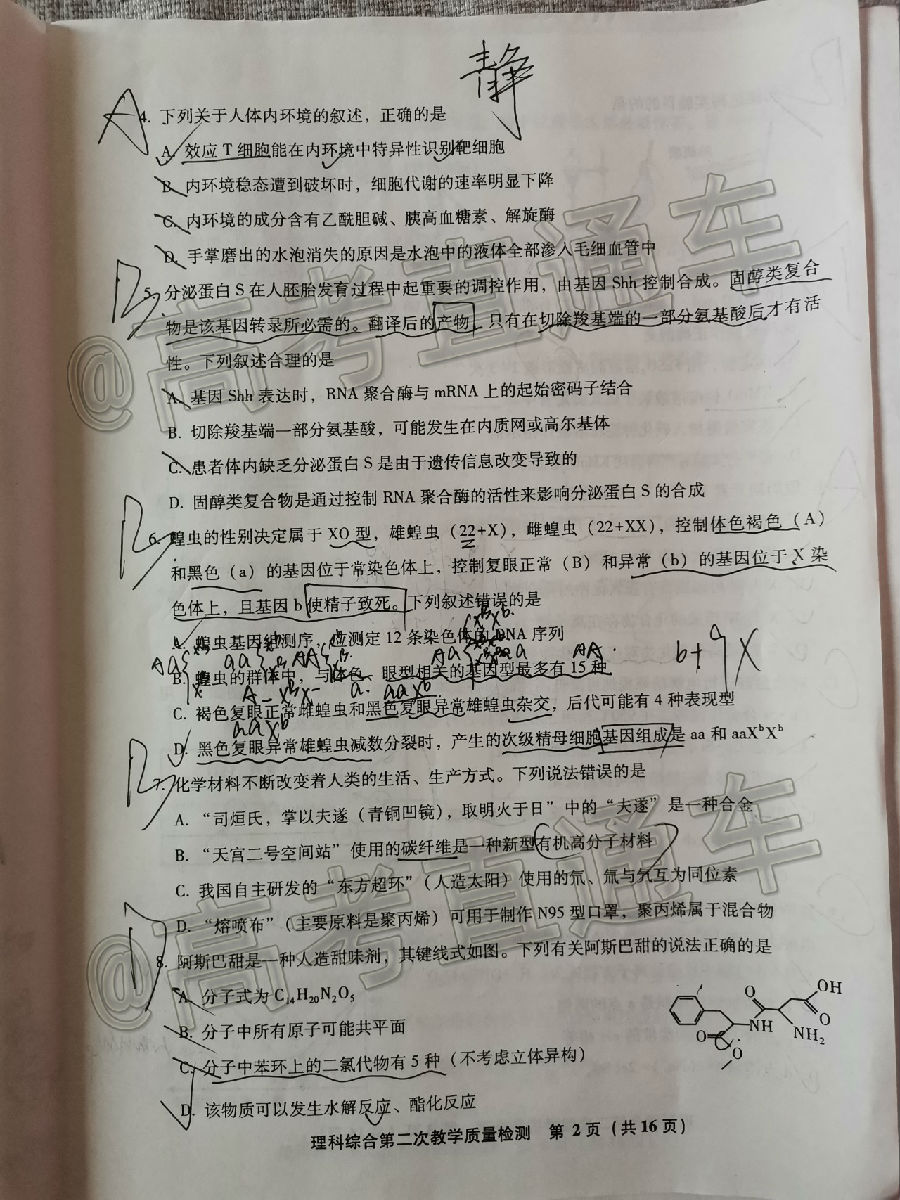 静
A
4. 下列关于人体内环境的叙述，正确的是
A. 效应T细胞能在内环境中特异性识别靶细胞
B. 内环境稳态遭到破坏时，细胞代谢的速率明显下降
C. 内环境的成分含有乙酰胆碱、胰高血糖素、解旋酶
D. 手掌磨出的水泡消失的原因是水泡中的液体全部渗入毛细血管中
B
5. 分泌蛋白S在人胚胎发育过程中起重要的调控作用，由基因Shh控制合成。固醇类复合
物是该基因转录所必需的。翻译后的产物，只有在切除羧基端的一部分氨基酸后才有活
性。下列叙述合理的是
A. 基因Shh表达时，RNA聚合酶与mRNA上的起始密码子结合
B. 切除羧基端一部分氨基酸，可能发生在内质网或高尔基体
C. 患者体内缺乏分泌蛋白S是由于遗传信息改变导致的
D. 固醇类复合物是通过控制RNA聚合酶的活性来影响分泌蛋白S的合成
B
6. 蝗虫的性别决定属于XO型，雄蝗虫（22+X），雌蝗虫（22+XX），控制体色褐色（A）
和黑色（a）的基因位于常染色体上，控制复眼正常（B）和异常（b）的基因位于X染
色体上，且基因b使精子致死。下列叙述错误的是
A. 蝗虫基因组测序，应测定12条染色体的DNA序列
B. 蝗虫的群体中，与体色、眼型相关的基因型最多有15种
C. 褐色复眼正常雌蝗虫和黑色复眼异常雄蝗虫杂交，后代可能有4种表现型
aaXᵇ
D. 黑色复眼异常雄蝗虫减数分裂时，产生的次级精母细胞基因组成是aa和aaXᵇXᵇ
B
7. 化学材料不断改变着人类的生活、生产方式。下列说法错误的是
A. “司烜氏，掌以夫遂（青铜凹镜），取明火于日”中的“夫遂”是一种合金
B. “天宫二号空间站”使用的碳纤维是一种新型有机高分子材料
C. 我国自主研发的“东方超环”（人造太阳）使用的氘、氚与氕互为同位素
D. “熔喷布”（主要原料是聚丙烯）可用于制作N95型口罩，聚丙烯属于混合物
D
8. 阿斯巴甜是一种人造甜味剂，其键线式如图。下列有关阿斯巴甜的说法正确的是
A. 分子式为C₁₄H₂₀N₂O₅
B. 分子中所有原子可能共平面
C. 分子中苯环上的二氯代物有5种（不考虑立体异构）
D. 该物质可以发生水解反应、酯化反应
O OH
O NH O NH₂
O
理科综合第二次教学质量检测 第2页（共16页）
@高考直通车
@高考直通车